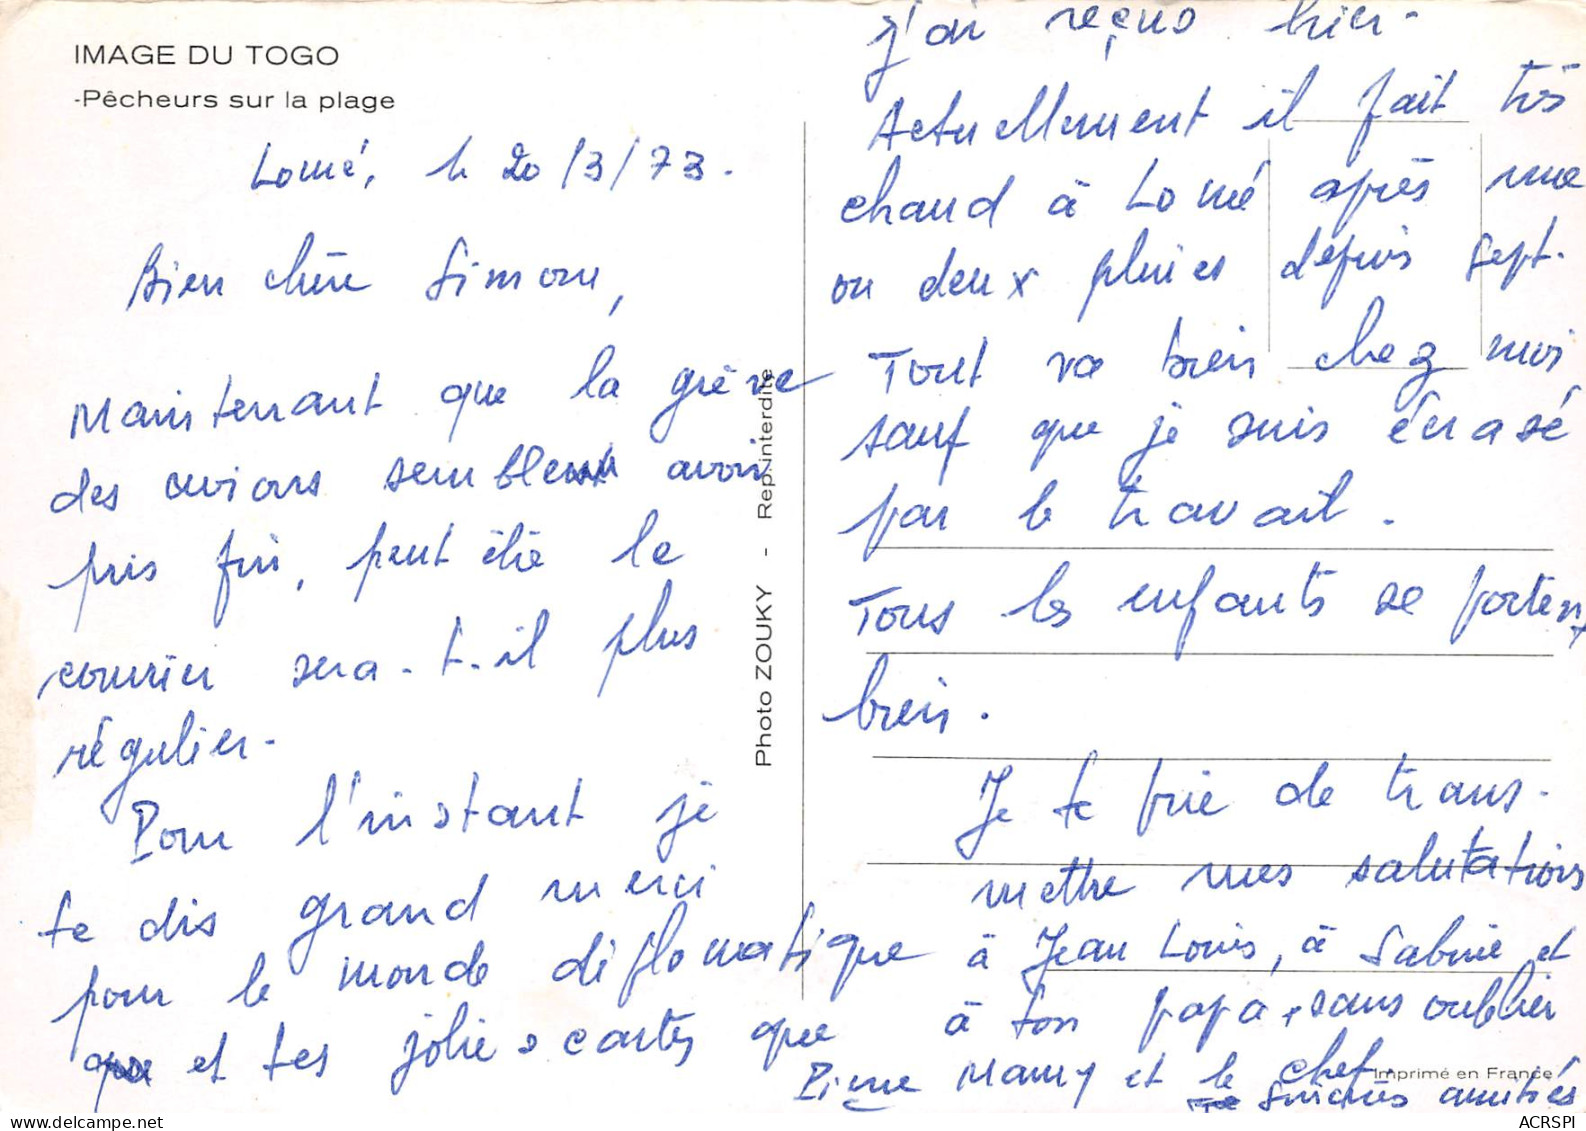 IMAGE DU TOGO
-Pêcheurs sur la plage
Lomé, le 20/3/73.
Bien chère Simone,
Maintenant que la grève
des avions semble avoir
pris fin, peut être le
courrier sera-t-il plus
régulier.
Pour l'instant je
te dis grand merci
pour le monde diplomatique
et tes jolies cartes que
j'ai reçus hier.
Actuellement il fait très
chaud à Lomé après une
ou deux pluies depuis sept.
Tout va bien chez moi
sauf que je suis écrasé
par le travail.
Tous les enfants se portent
bien.
Je te prie de trans-
mettre mes salutations
à Jean Louis, à Sabine et
à ton papa, sans oublier
Pierre Mamy et le chef.
Sincères amitiés
Photo ZOUKY - Rep. interdite
Imprimé en France
ACRSPI